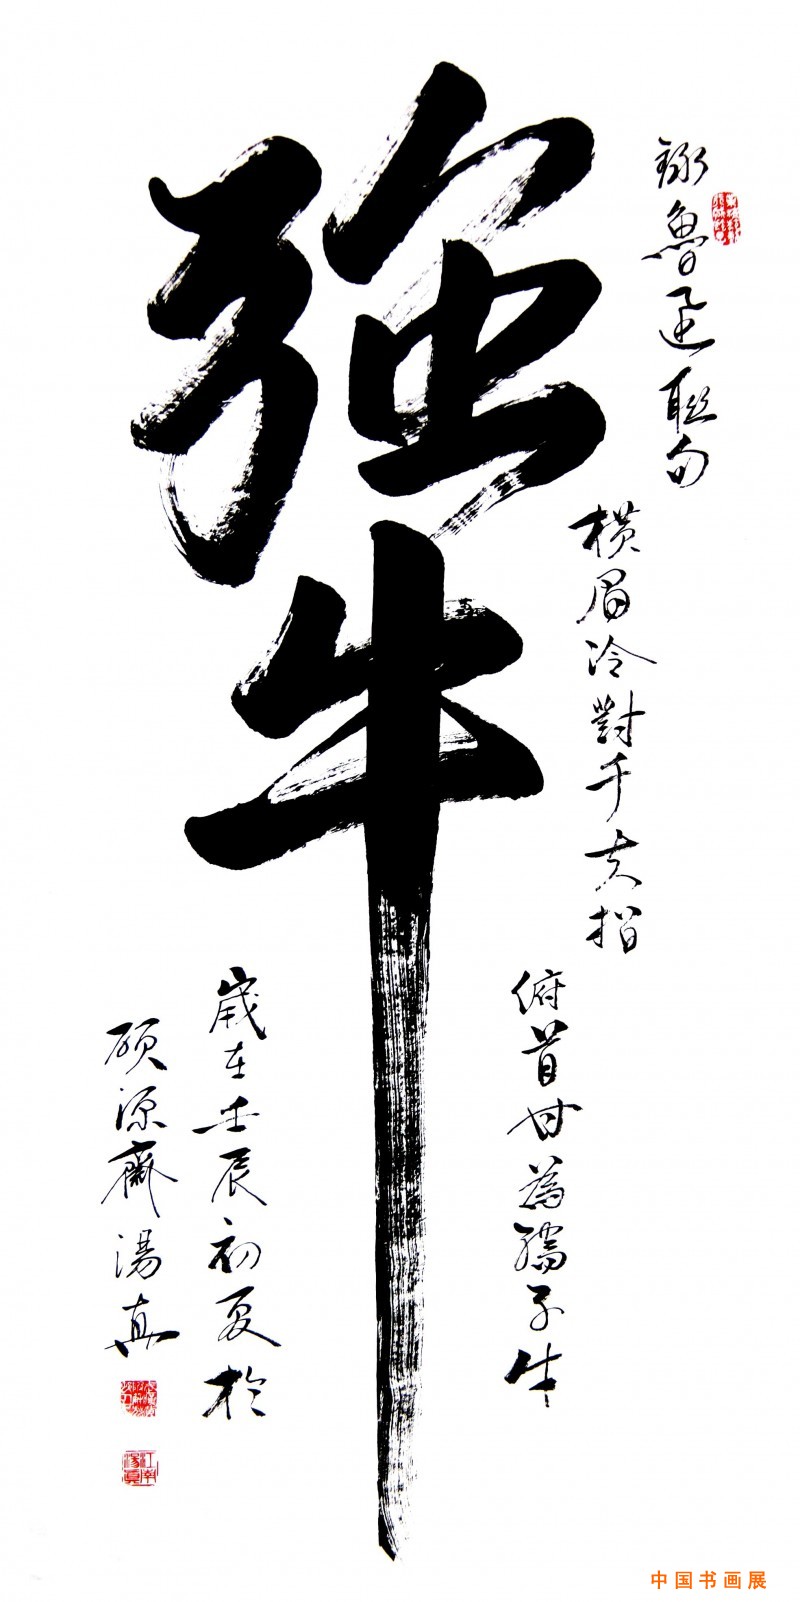 強牛
録魯迅聯句
橫眉冷對千夫指
俯首甘為孺子牛
歲在壬辰初夏於
碩源齋湯真
中国书画展